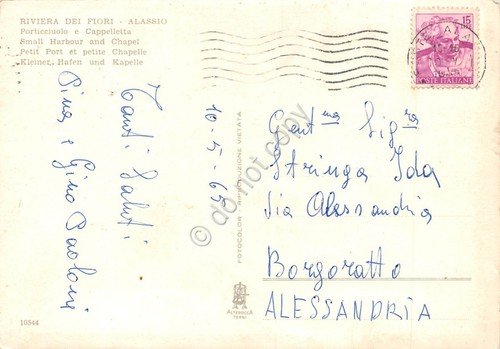 RIVIERA DEI FIORI - ALASSIO
Porticciuolo e Cappelletta
Small Harbour and Chapel
Petit Port et petite Chapelle
Kleiner Hafen und Kapelle
10-5-65
Tanti Saluti
Pina e Gino Paoloni
Gent.ma Sig.ra
Stringa Ida
Via Alessandria
Borgoratto
ALESSANDRIA
15
POSTE ITALIANE
FOTOCOLOR - RIPRODUZIONE VIETATA
ALTEROCCA
TERNI
10544
© do not copy